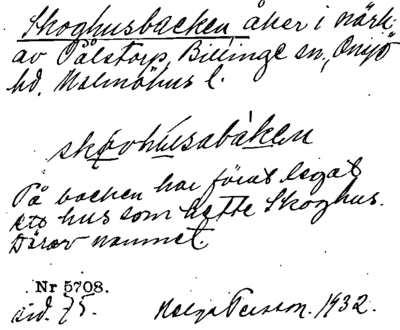 Skoghusbacken åker i närh.
av Pålstorp, Billinge sn, Onsjö
hd, Malmöhus l.
skovhusabaken
På backen har förut legat
ett hus som hette Skoghus.
Därav namnet.
Nr 5708.
sid. 75.    Helge Persson. 1932.